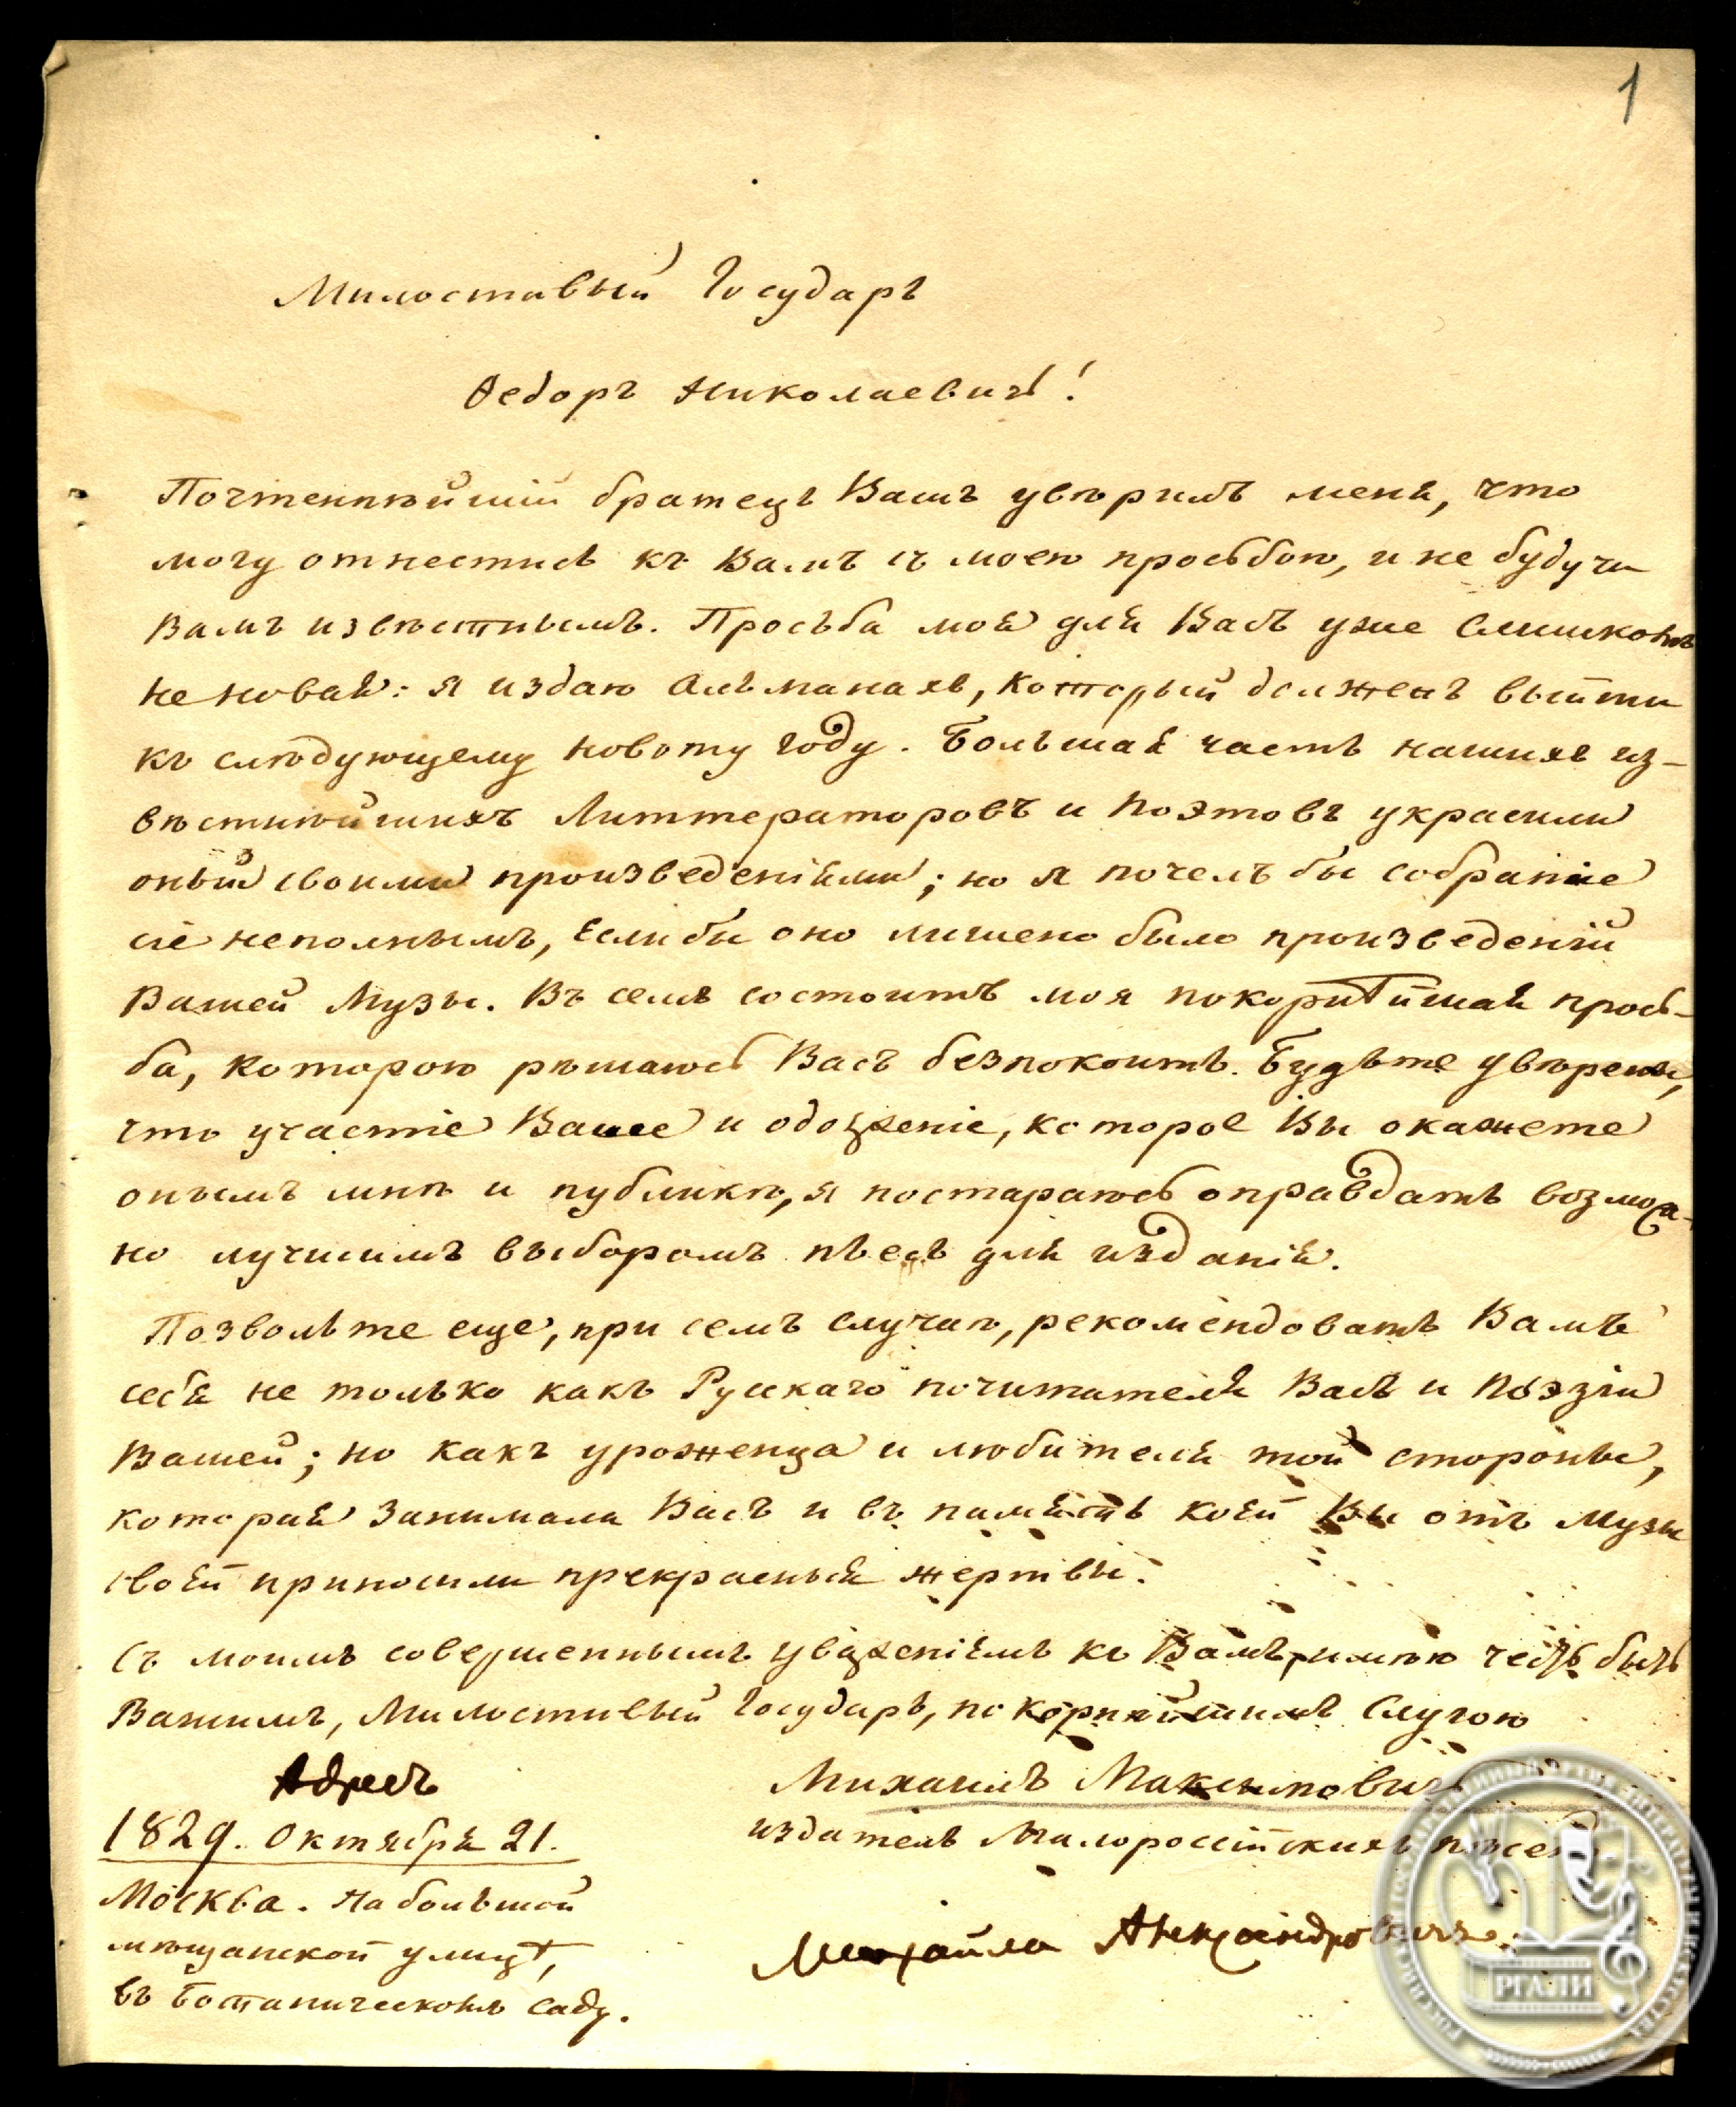 1
Милостивый Государь
Ѳедоръ Николаевичь!
Почтеннѣйшій братецъ Вашъ увѣрилъ меня, что
могу отнестись къ Вамъ съ моею просьбою, и не будучи
Вамъ извѣстнымъ. Просьба моя для Васъ уже слишкомъ
не новая: я издаю Альманахъ, который долженъ выйти
къ слѣдующему новому году. Большая часть нашихъ из-
вѣстнѣйшихъ Литтераторовъ и Поэтовъ украсили
оный своими произведеніями; но я почелъ бы собраніе
сіе неполнымъ, если бы оно лишено было произведеній
Вашей Музы. Въ семъ состоитъ моя покорнѣйшая прось-
ба, которою рѣшаюсь Васъ безпокоить. Будьте увѣрены,
что участіе Ваше и одолженіе, которое Вы окажете
онымъ мнѣ и публикѣ, я постараюсь оправдать возмож-
но лучшимъ выборомъ пьесъ для изданія.
Позвольте еще, при семъ случаѣ, рекомендовать Вамъ
себя не только какъ Русскаго почитателя Васъ и Поэзіи
Вашей; но какъ уроженца и любителя той стороны,
которая занимала Васъ и въ память коей Вы отъ Музы
своей приносили прекрасныя жертвы.
Съ моимъ совершеннымъ уваженіемъ къ Вамъ, имѣю честь быть
Вашимъ, Милостивый Государь, покорнѣйшимъ слугою
Адресъ
Михаилъ Максимовичь
1829. Октября 21.
издатель Малороссійскихъ пѣсень
Москва. На большой
мѣщанской улицѣ,
въ Ботаническомъ саду.
Михайла Александровичь
РГАЛИ